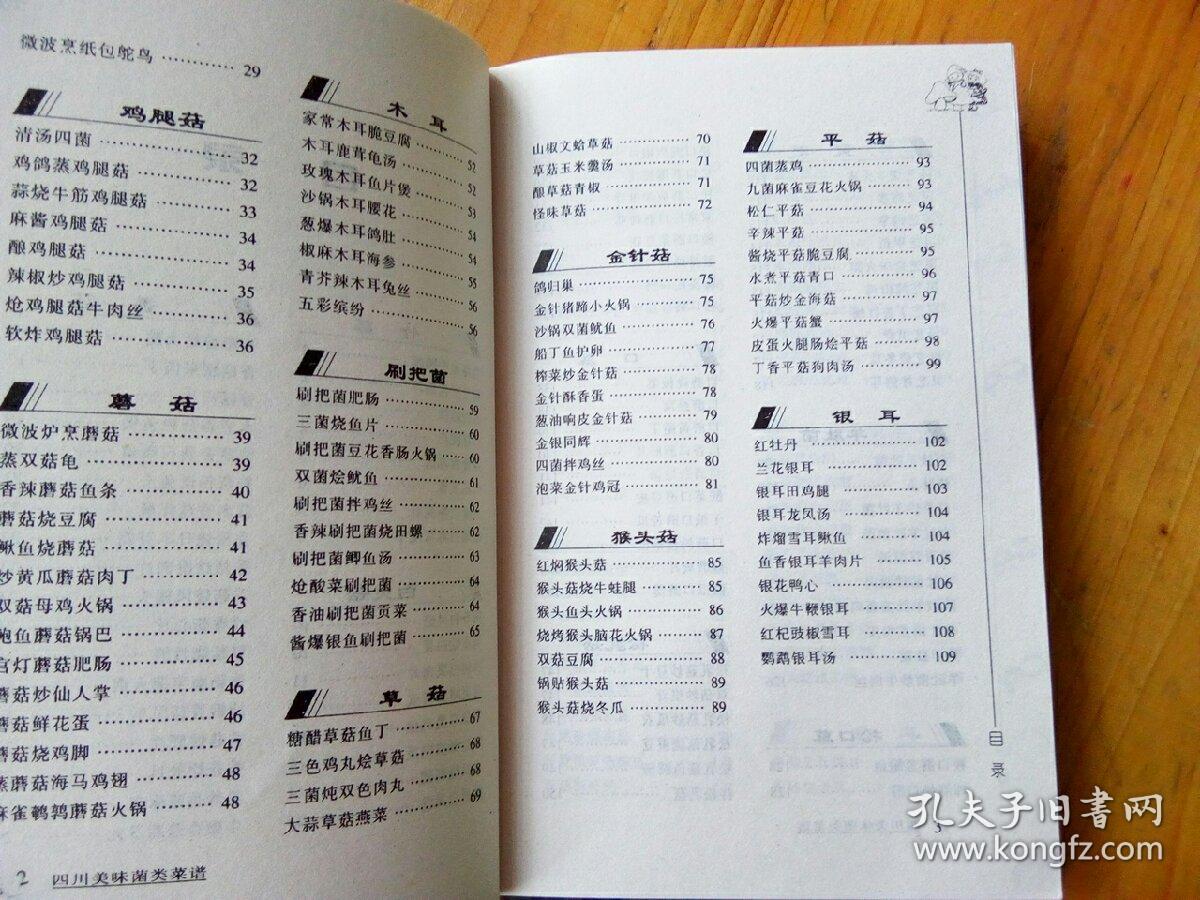 微波烹纸包鸵鸟 ………… 29
鸡腿菇
清汤四菌 ………… 32
鸡鸽蒸鸡腿菇 ………… 32
蒜烧牛筋鸡腿菇 ………… 33
麻酱鸡腿菇 ………… 34
酿鸡腿菇 ………… 34
辣椒炒鸡腿菇 ………… 35
炝鸡腿菇牛肉丝 ………… 36
软炸鸡腿菇 ………… 36
蘑菇
微波炉烹蘑菇 ………… 39
蒸双菇龟 ………… 39
香辣蘑菇鱼条 ………… 40
蘑菇烧豆腐 ………… 41
鳅鱼烧蘑菇 ………… 41
炒黄瓜蘑菇肉丁 ………… 42
双菇母鸡火锅 ………… 43
鲍鱼蘑菇锅巴 ………… 44
宫灯蘑菇肥肠 ………… 45
蘑菇炒仙人掌 ………… 46
蘑菇鲜花蛋 ………… 46
蘑菇烧鸡脚 ………… 47
蒸蘑菇海马鸡翅 ………… 48
麻雀鹌鹑蘑菇火锅 ………… 48
2 四川美味菌类菜谱
木耳
家常木耳脆豆腐 ………… 52
木耳鹿茸龟汤 ………… 52
玫瑰木耳鱼片煲 ………… 52
沙锅木耳腰花 ………… 53
葱爆木耳鸽肚 ………… 54
椒麻木耳海参 ………… 54
青芥辣木耳兔丝 ………… 55
五彩缤纷 ………… 56
刷把菌
刷把菌肥肠 ………… 59
三菌烧鱼片 ………… 60
刷把菌豆花香肠火锅 ………… 60
双菌烩鱿鱼 ………… 61
刷把菌拌鸡丝 ………… 62
香辣刷把菌烧田螺 ………… 62
刷把菌鲫鱼汤 ………… 63
炝酸菜刷把菌 ………… 64
香油刷把菌贡菜 ………… 64
酱爆银鱼刷把菌 ………… 65
草菇
糖醋草菇鱼丁 ………… 67
三色鸡丸烩草菇 ………… 68
三菌炖双色肉丸 ………… 68
大蒜草菇燕菜 ………… 69
山椒文蛤草菇 ………… 70
草菇玉米羹汤 ………… 71
酿草菇青椒 ………… 71
怪味草菇 ………… 72
金针菇
鸽归巢 ………… 75
金针猪蹄小火锅 ………… 75
沙锅双菌鱿鱼 ………… 76
船丁鱼护卵 ………… 77
榨菜炒金针菇 ………… 78
金针酥香蛋 ………… 78
葱油响皮金针菇 ………… 79
金银同辉 ………… 80
四菌拌鸡丝 ………… 80
泡菜金针鸡冠 ………… 81
猴头菇
红焖猴头菇 ………… 85
猴头菇烧牛蛙腿 ………… 85
猴头鱼头火锅 ………… 86
烧烤猴头脑花火锅 ………… 87
双菇豆腐 ………… 88
锅贴猴头菇 ………… 89
猴头菇烧冬瓜 ………… 89
平菇
四菌蒸鸡 ………… 93
九菌麻雀豆花火锅 ………… 93
松仁平菇 ………… 94
辛辣平菇 ………… 95
酱烧平菇脆豆腐 ………… 95
水煮平菇青口 ………… 96
平菇炒金海菇 ………… 97
火爆平菇蟹 ………… 97
皮蛋火腿肠烩平菇 ………… 98
丁香平菇狗肉汤 ………… 99
银耳
红牡丹 ………… 102
兰花银耳 ………… 102
银耳田鸡腿 ………… 103
银耳龙凤汤 ………… 104
炸熘雪耳鳅鱼 ………… 104
鱼香银耳羊肉片 ………… 105
银花鸭心 ………… 106
火爆牛鞭银耳 ………… 107
红杞豉椒雪耳 ………… 108
鹦鹉银耳汤 ………… 109
目录
3
孔夫子旧书网
www.kongfz.com